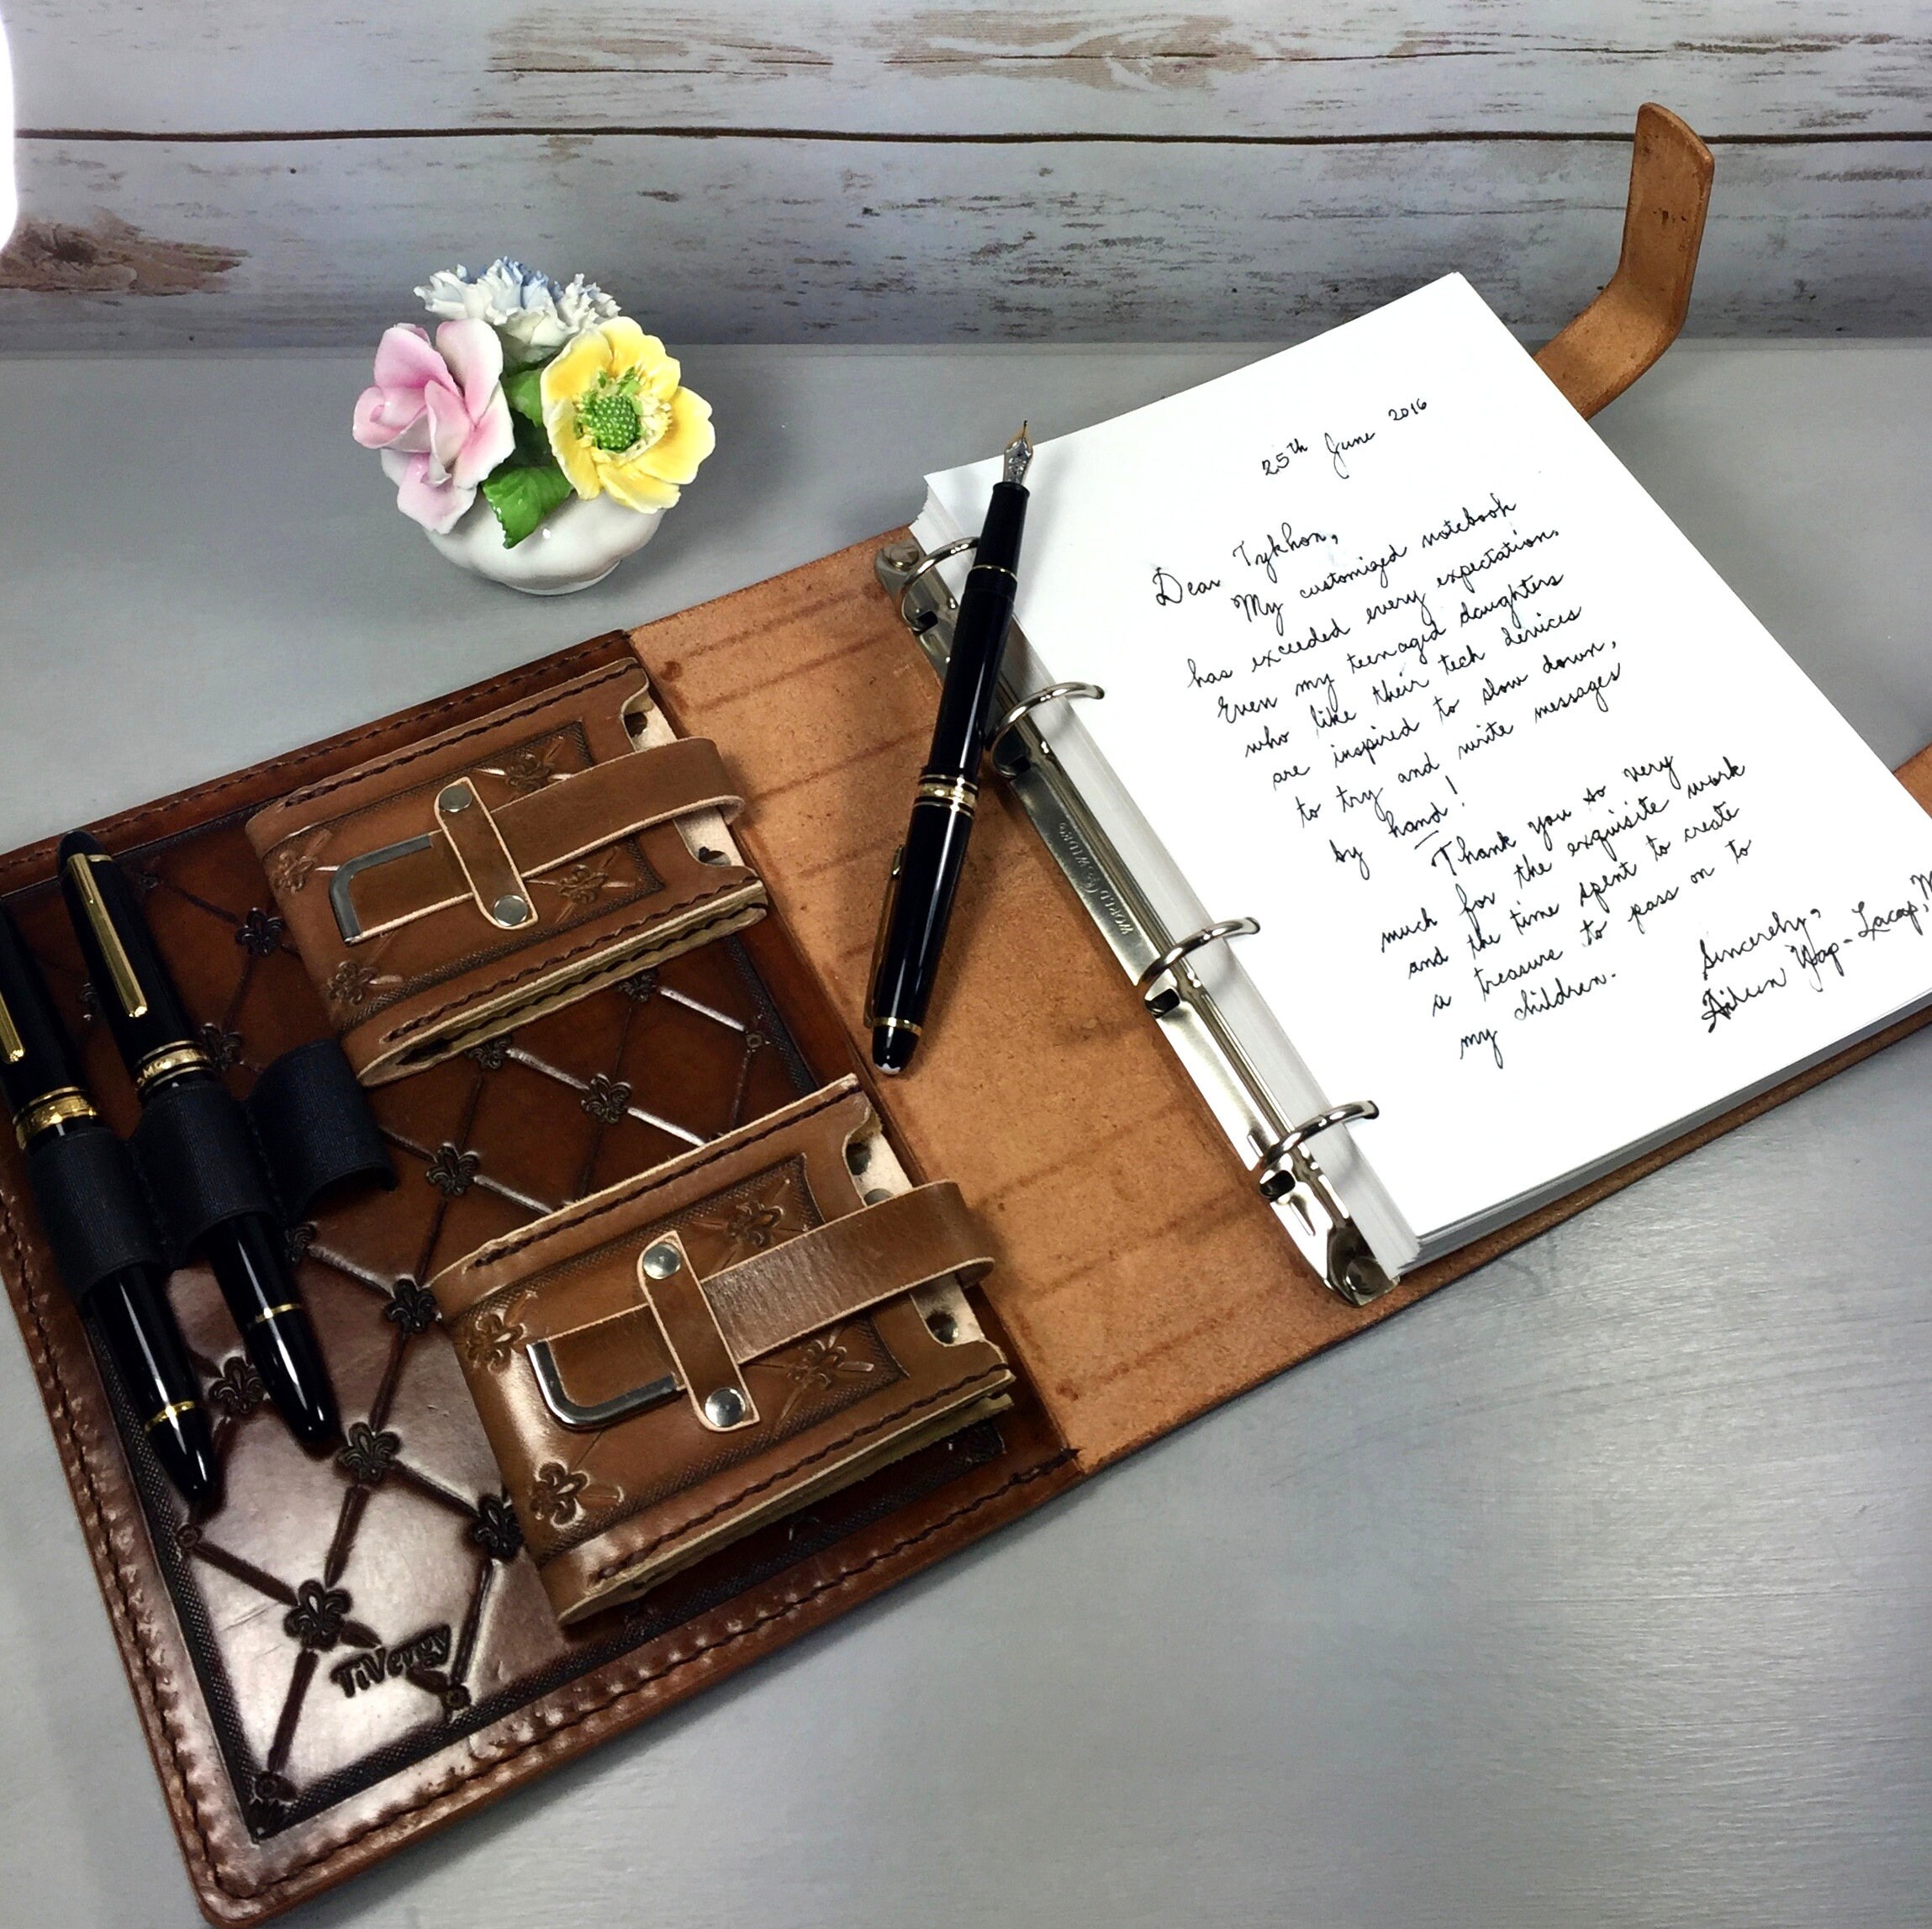 25th June 2016
Dear Tykhon,
My customized notebook
has exceeded every expectation.
Even my teenaged daughters
who like their tech devices
are inspired to slow down,
to try and write messages
by hand!
Thank you so very
much for the exquisite work
and the time spent to create
a treasure to pass on to
my children.
Sincerely,
Aileen Yap-Lacap,
WORLD
TiVergy